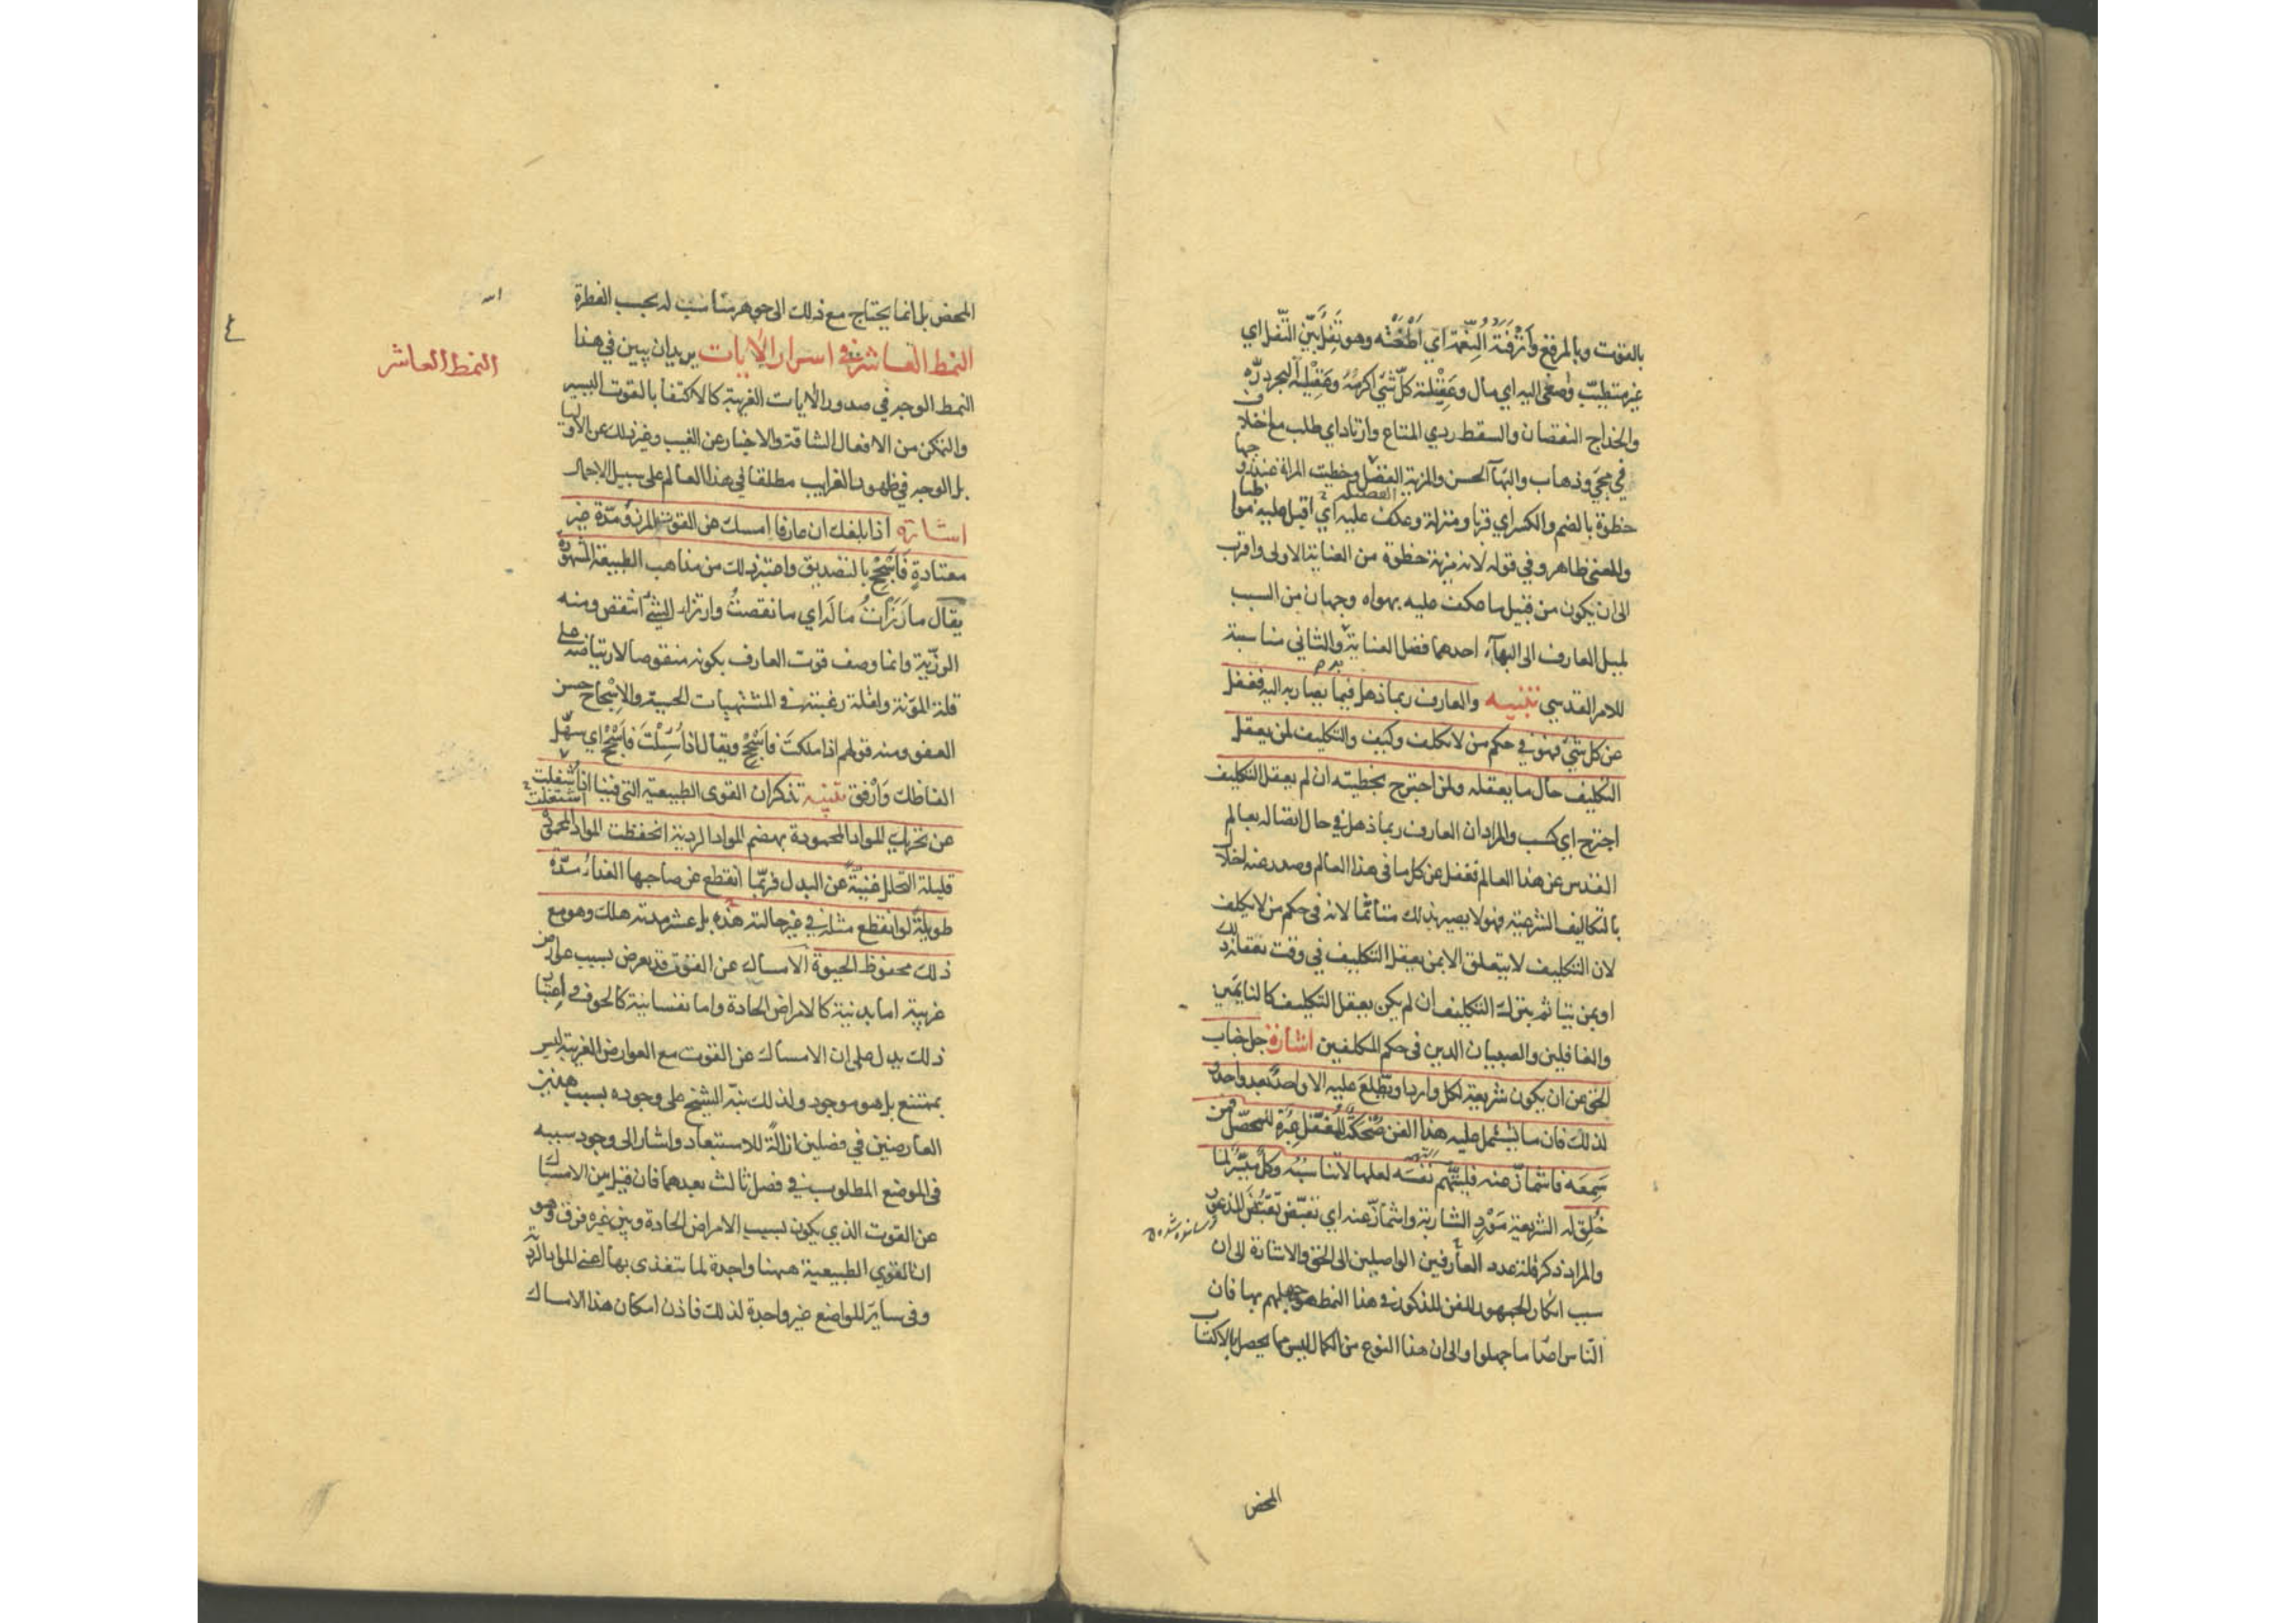 بالقوت وبالمرقع وَأَتْرَفَتْهُ النِّعْمَةُ اي اَطْغَتْه وهو تَفِلٌ بَيِّنُ التَّفَل اي
غير متطيّب وصغى اليه اي مال وعَقِيْلة كلّ شئ اكرمُهُ وعَقِيْلة البحر درّه
والخداج النقصان والسقط ردي المتاع وارتاد اي طلب مع اختلاف
في مجئ وذهاب والبهآ الحسن والمزية الفضيلة وحظيت المراة عند زوجها
حظوة بالضم والكسر اي قربا ومنزلة وعكف عليه اي اقبل عليه مواظبا
والمعنى ظاهر وفي قوله لانه مزية حظوة من العناية الاولى واقرب
الى ان يكون من قبيل ما عكف عليه بهواه وجهان من السبب
لميل العارف الى البهآء احدهما فضل العناية والثاني مناسبة
للامر القدسي تنبيه والعارف ربما ذهل فيما يصار به اليه فغفل
عن كل شئ فهو في حكم من لا يكلف وكيف والتكليف لمن يعقل
التكليف حال ما يعقله ولمن اجترح بخطيئته ان لم يعقل التكليف
اجترح اي كسب والمراد ان العارف ربما ذهل في حال اتصاله بعالم
القدس عن هذا العالم فغفل عن كل ما في هذا العالم وصدر عنه اخلال
بالتكاليف الشرعية فهو لا يصير بذلك متأثّما لانه في حكم من لا يكلف
لان التكليف لا يتعلق الا بمن يعقل التكليف في وقت تعقله ذلك
او بمن يتاثم بترك التكليف ان لم يكن يعقل التكليف كالنايمين
والغافلين والصبيان الذين في حكم المكلفين اشارة جل جناب
الحق عن ان يكون شريعة لكل وارد او يَطَّلِعَ عليه الا واحدٌ بعد واحد
لذلك فان ما يشتمل عليه هذا الفن ضُحْكَةٌ للمُغَفَّل عِبْرَةٌ للمحصّل فمن
سَمِعَه فاشمأزّ عنه فليتّهم نَفْسَه لعلها لا تناسبُهُ وكلٌّ مُيَسَّرٌ لما
خُلِقَ له الشريعة مَوْرِد الشاربة واشمأزّ عنه اي تقبّض تَقَبُّضَ المذعور
والمراد ذكر قلة عدد العارفين الواصلين الى الحق والاشارة الى ان
سبب انكار الجمهور للفن المذكور في هذا النمط هو جهلهم بها فان
النّاس اعداء ما جهلوا والى ان هذا النوع من الكمال ليس مما يحصل بالاكتساب
المحض
المحض بل انما يحتاج مع ذلك الى جوهر مناسب له بحسب الفطرة
النمط العاشر في اسرار الآيات يريد ان يبين في هذا
النمط العاشر
النمط الوجه في صدور الآيات الغريبة كالاكتفا بالقوت اليسير
والتمكن من الافعال الشاقة والاخبار عن الغيب وغير ذلك عن الاوليا
بل الوجه في ظهور الغرايب مطلقا في هذا العالم على سبيل الاجمال
اشارة اذا بلغك ان عارفا امسك عن القوت المرزوء مدّة غير
معتادةٍ فَاَسْجِحْ بالتصديق واعتبر ذلك من مذاهب الطبيعة المشهورة
يقال ما رَزَأْتُ مالَه اي ما نقصتُ وارتزا الشئُ انتقص ومنه
الرزّية وانما وصف قوت العارف بكونه منقوصا لارتياضه على
قلة المؤنة ولقلة رغبته في المشتهيات الحسية والاِسْجاح حسن
العفو ومنه قولهم اذا ملكتَ فاَسْجِحْ ويقال اذا سُئِلْتَ فاَسْجِحْ اي سهّل
الفاظك وَارْفق تنبيه تذكر ان القوى الطبيعية التي فينا اذا شُغِلت
اشتغلت
عن تحريك المواد المحمودة بهضم المواد الردية انحفظت المواد المحمودة
قليلة التحلل غنيةً عن البدل فربّما انقطع عن صاحبها الغذاءُ مدّة
طويلةً لو انقطع مثله في غير حالته هذه بل عشر مدته هلك وهو مع
ذلك محفوظ الحيوة الامساك عن القوت قد يعرض بسبب عوارض
غريبة اما بدنية كالامراض الحادة واما نفسانية كالخوف في اعتبار
ذلك يدل على ان الامساك عن القوت مع العوارض الغريبة ليس
بممتنع بل هو موجود ولذلك نبّه الشيخ على وجوده بسبب هذين
العارضين في فصلين ازالةً للاستبعاد واشار الى وجود سببه
في الموضع المطلوب في فصل ثالث بعدهما فان قيل بين الامساك
عن القوت الذي يكون بسبب الامراض الحادة وبين غيره فرق وهو
ان القوى الطبيعية ههنا واجدة لما تتغذى بها اعني المواد الردية
وفي ساير المواضع غير واجدة لذلك فاذن امكان هذا الامساك